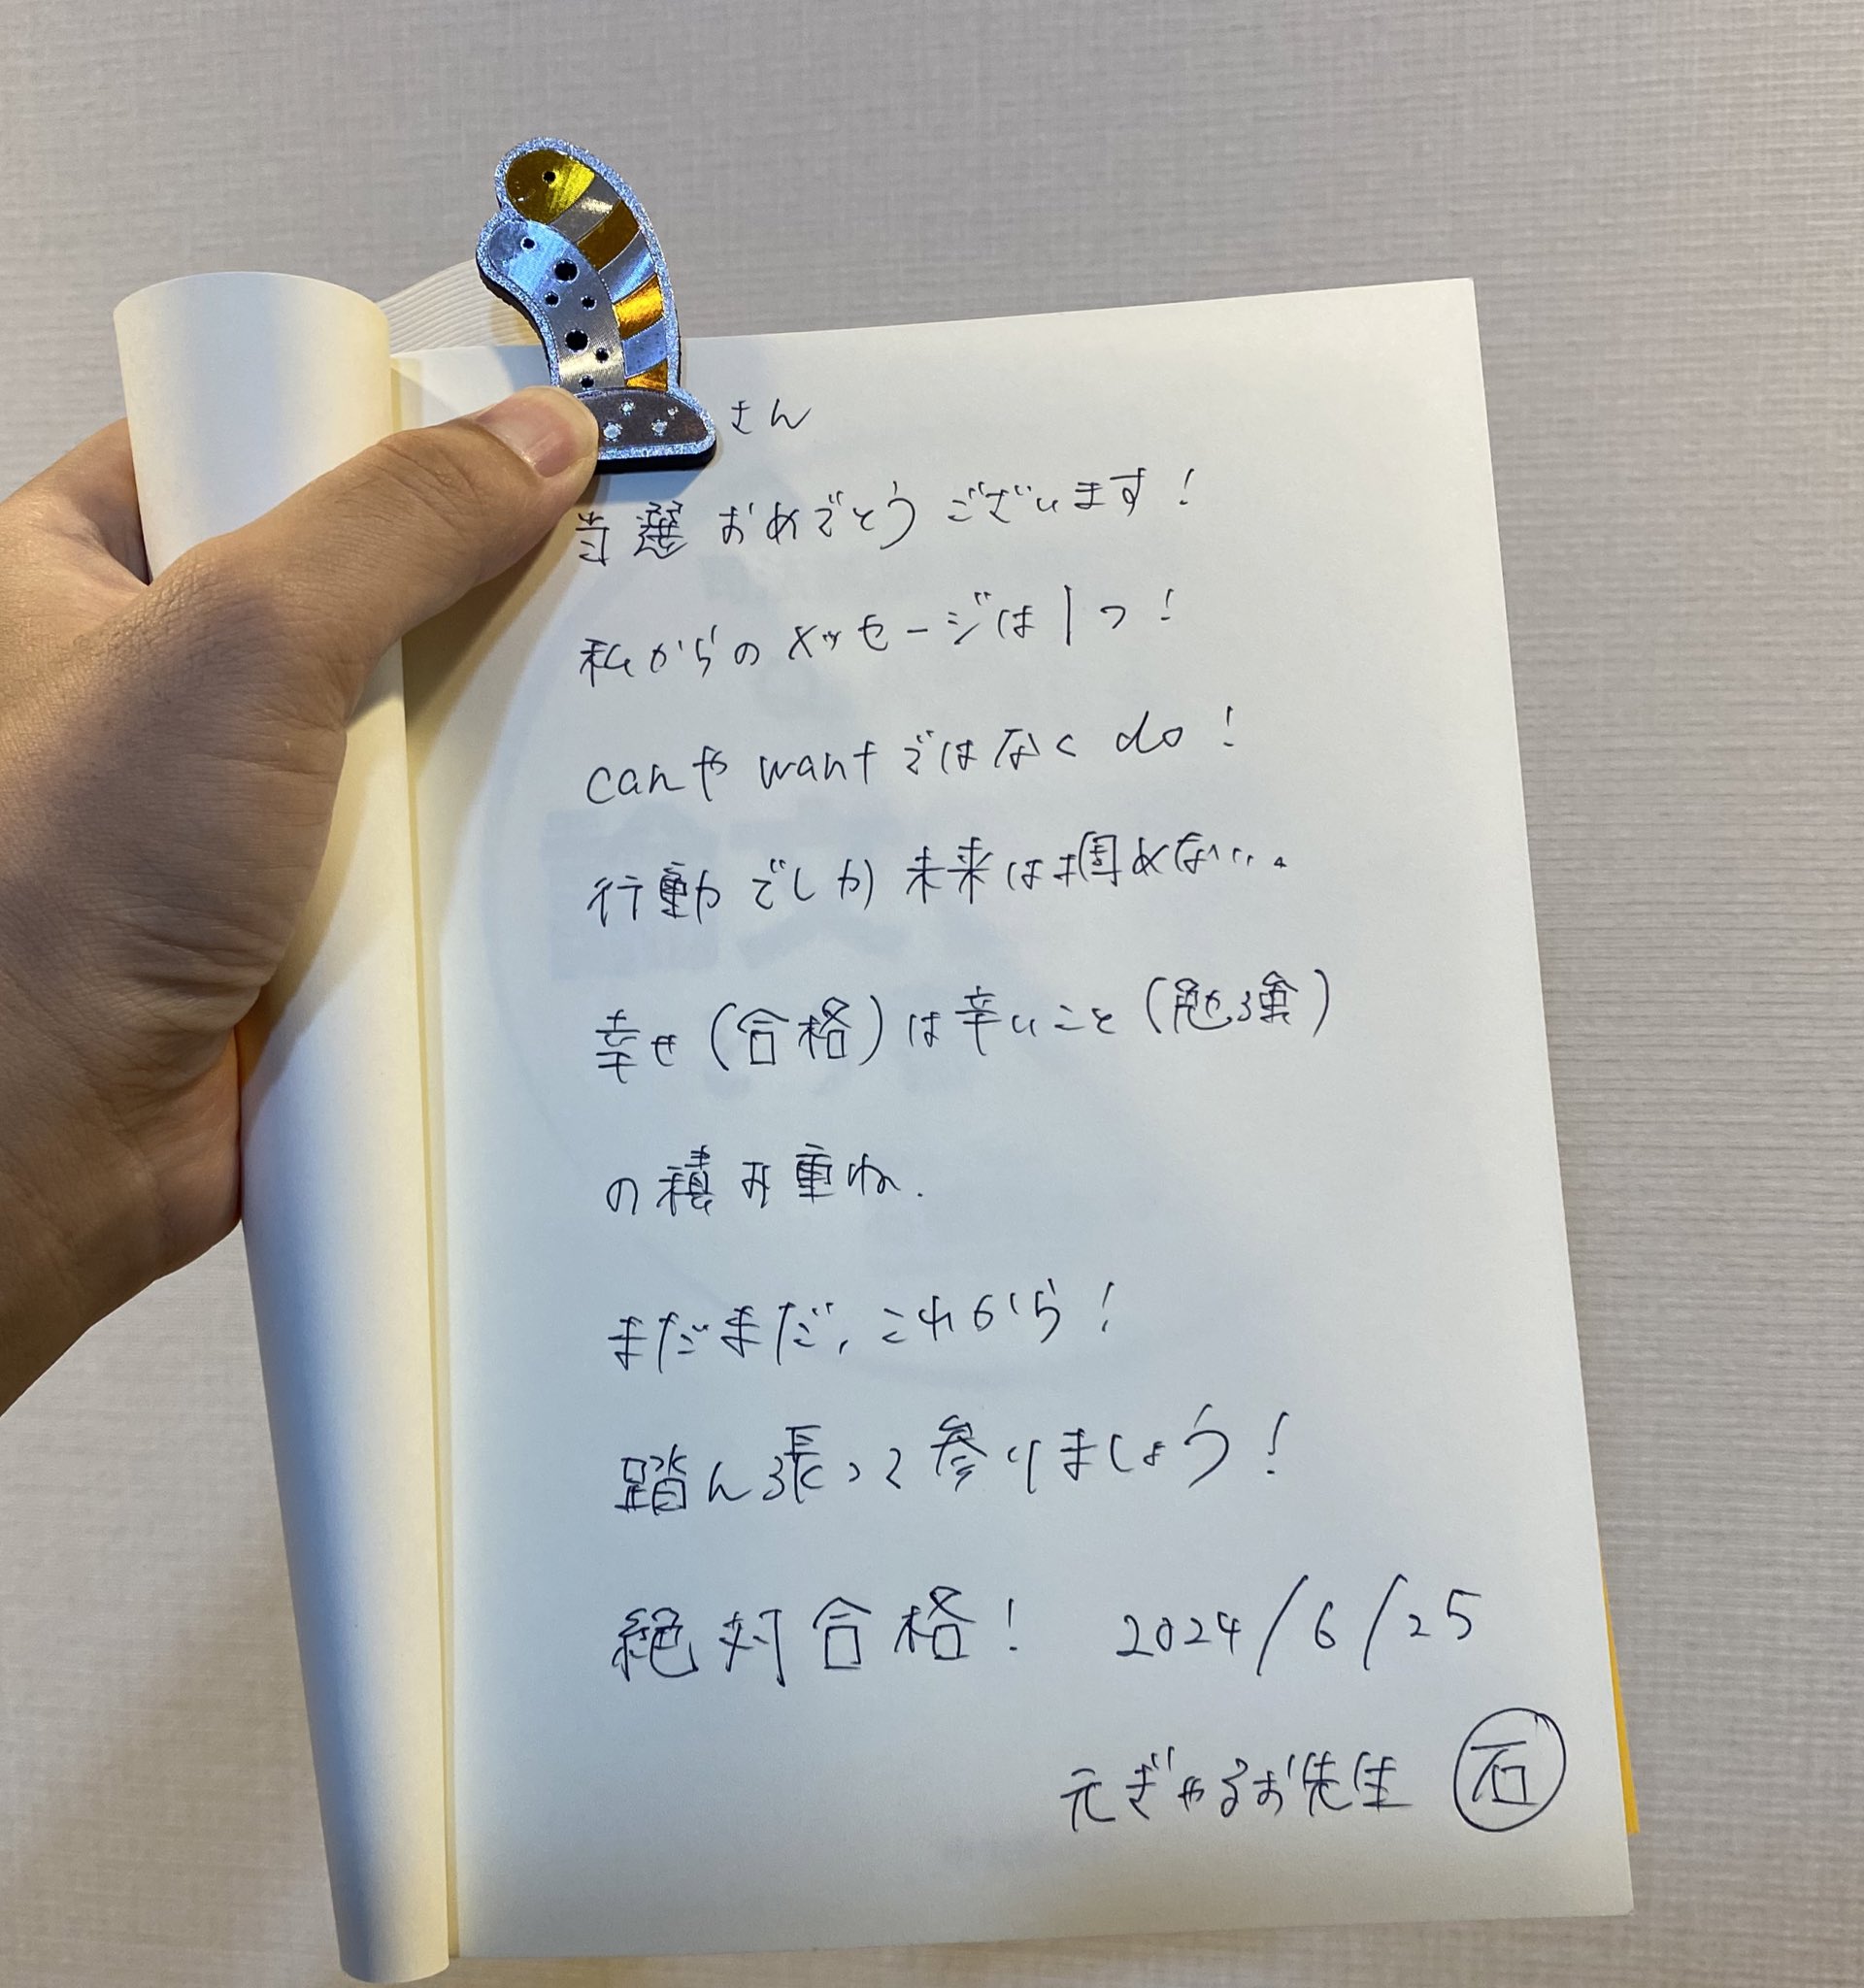 さん
当選おめでとうございます！
私からのメッセージは1つ！
canや wantではなく do！
行動でしか未来は掴めない。
幸せ(合格)は辛いこと(勉強)
の積み重ね.
まだまだ、これから！
踏ん張って参りましょう！
絶対合格！ 2024/6/25
元ぎゃるお先生 石